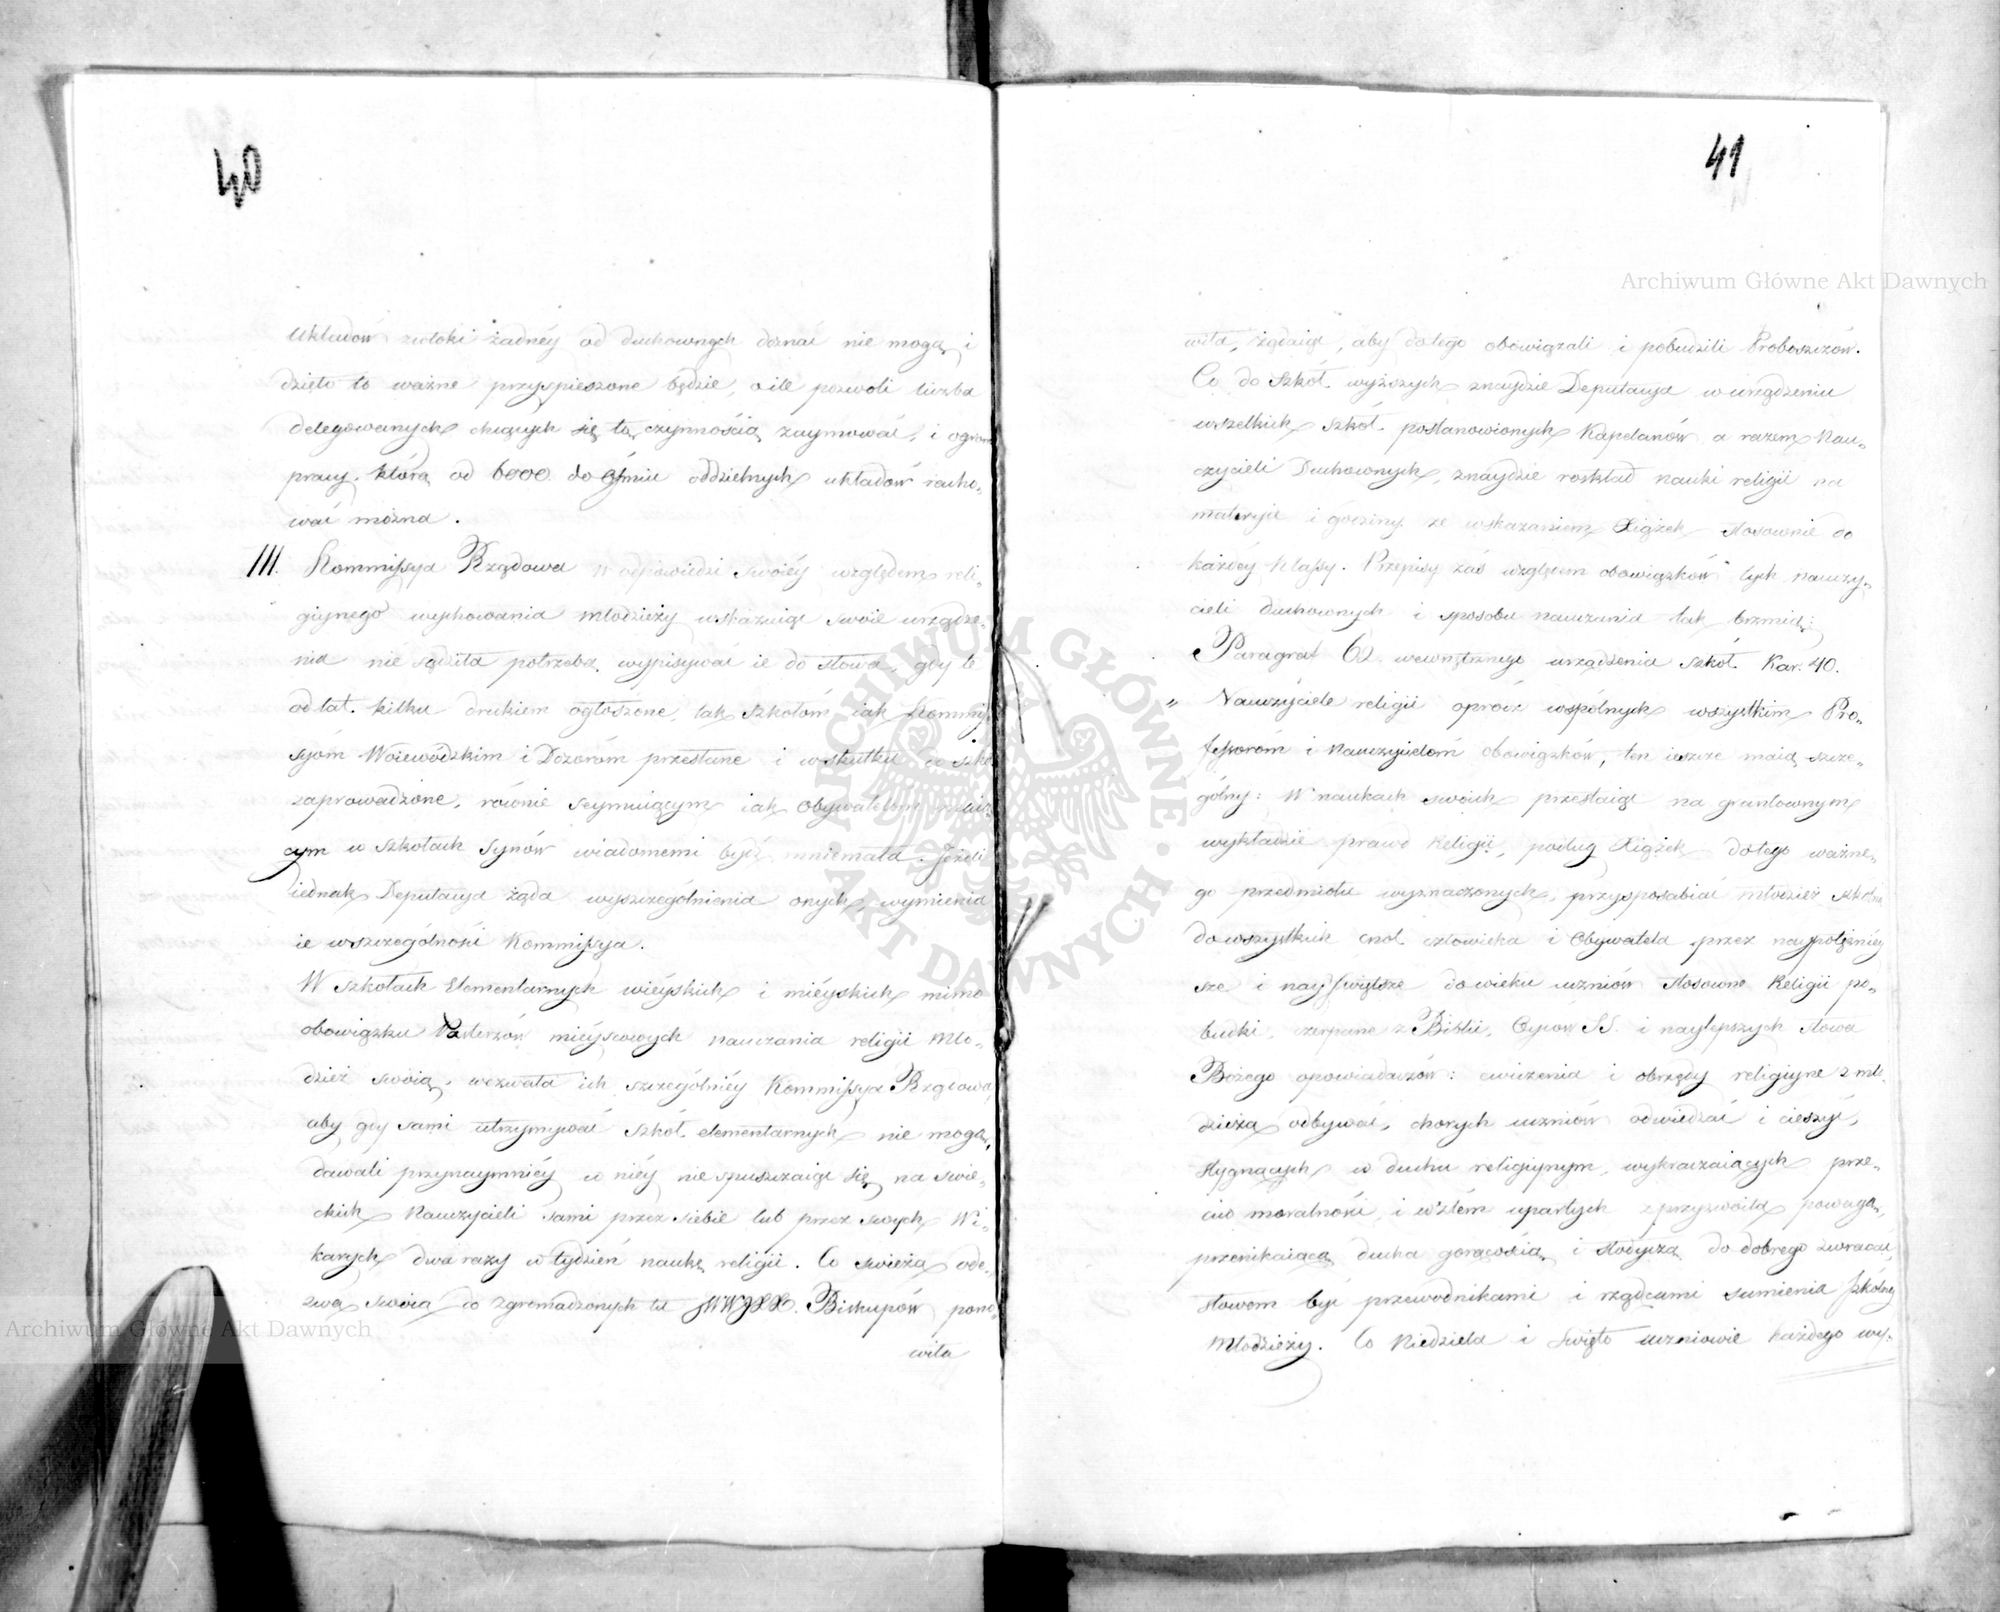 40
układów zwłoki żadnéy od duchownych doznać nie mogą, i
dzieło to ważne przyspieszone będzie, o ile pozwoli liczba
delegowanych chcących się tą czynnością zaymować, i ogrom
pracy, którą od 6000 do ośmiu oddzielnych układów racho-
wać można.
III. Kommissya Rządowa w odpowiedzi swoiéy względem reli-
giynego wychowania młodzieży wskazuiąc swoie urządze-
nia nie sądziła potrzebą wypisywać ie do słowa, gdy te
od lat kilku drukiem ogłoszone, tak szkołom iak Kommis
syóm Woiewódzkim i Dozorom przesłane i w skutku w szko
zaprowadzone, równie Seymuiącym iak Obywatelom
cym w szkołach Synów wiadomemi bydź mniemała. Jeżeli
iednak Deputacya żąda wyszczególnienia onych, wymienia
ie w szczególności Kommissya.
W szkołach Elementarnych wieyskich i mieyskich mimo
obowiązku Pasterzów mieyscowych nauczania religii Mło-
dzież swoią, wezwała ich szczególniéy Kommissya Rządowa,
aby gdy sami utrzymywać szkół elementarnych nie mogą,
dawali przynaymniéy w niéy nie spuszczaiąc się na świe-
ckich Nauczycieli sami przez siebie lub przez swych Wi-
karych dwa razy w tydzień naukę religii. Co świeżą ode-
zwą swoią do zgromadzonych tu JWWJXX. Biskupów pono-
wiła
41
wiła, żądaiąc, aby do tego obowiązali i pobudzili Proboszczów.
Co do Szkół wyższych znaydzie Deputacya w urządzeniu
wszelkich szkół postanowionych Kapelanów a razem Nau-
czycieli Duchownych, znaydzie roskład nauki religii na
materyie i godziny ze wskazaniem Xiążek stosownie do
każdéy Klassy. Przepisy zaś względem obowiązków tych nauczy-
cieli duchownych i sposobu nauczania tak brzmią:
Paragraf 62 wewnętrznego urządzenia szkół Kar. 40.
„ Nauczyciele religii oprócz wspólnych wszystkim Pro-
fessorom i Nauczycielom obowiązków, ten ieszcze maią szcze-
gólny: W naukach swoich przestaiąc na gruntownym
wykładzie prawd Religii, podług Xiążek do tego ważne-
go przedmiotu wyznaczonych, przysposabiać młodzież szkolną
do wszystkich cnot człowieka i Obywatela przez naypotężniey
sze i nayświętsze do wieku uczniów stosowne Religii po-
budki, czerpane z Biblii, Oyców SS. i naylepszych słowa
Bożego opowiadaczów: ćwiczenia i obrzędy religiyne z mło-
dzieżą odbywać, chorych uczniów odwiedzać i cieszyć,
stygnących w duchu religiynym, wykraczaiących prze-
ciw moralności, i w złém upartych z przyzwoitą powagą,
przenikaiącą ducha gorącością i słodyczą do dobrego zwracać,
słowem być przewodnikami i rządcami sumienia szkólnéy
Młodzieży. Co Niedziela i Święto uczniowie każdego wy-
Archiwum Główne Akt Dawnych
Archiwum Główne Akt Dawnych
ARCHIWUM GŁÓWNE AKT DAWNYCH